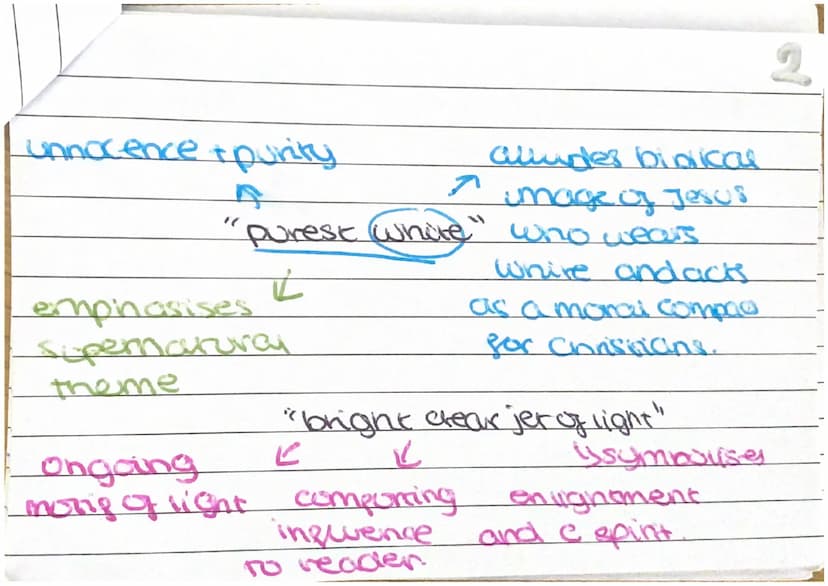 2
unnocence + purity
alludes biblical
image of Jesus
"purest white"
who wears
white and acts
emphasises
as a moral compass
supernatural
for Christians.
theme
"bright clear jet of light"
ongoing
symbolises
motif of light
comforting
enlightnment
influence
and C spirit.
to reader.